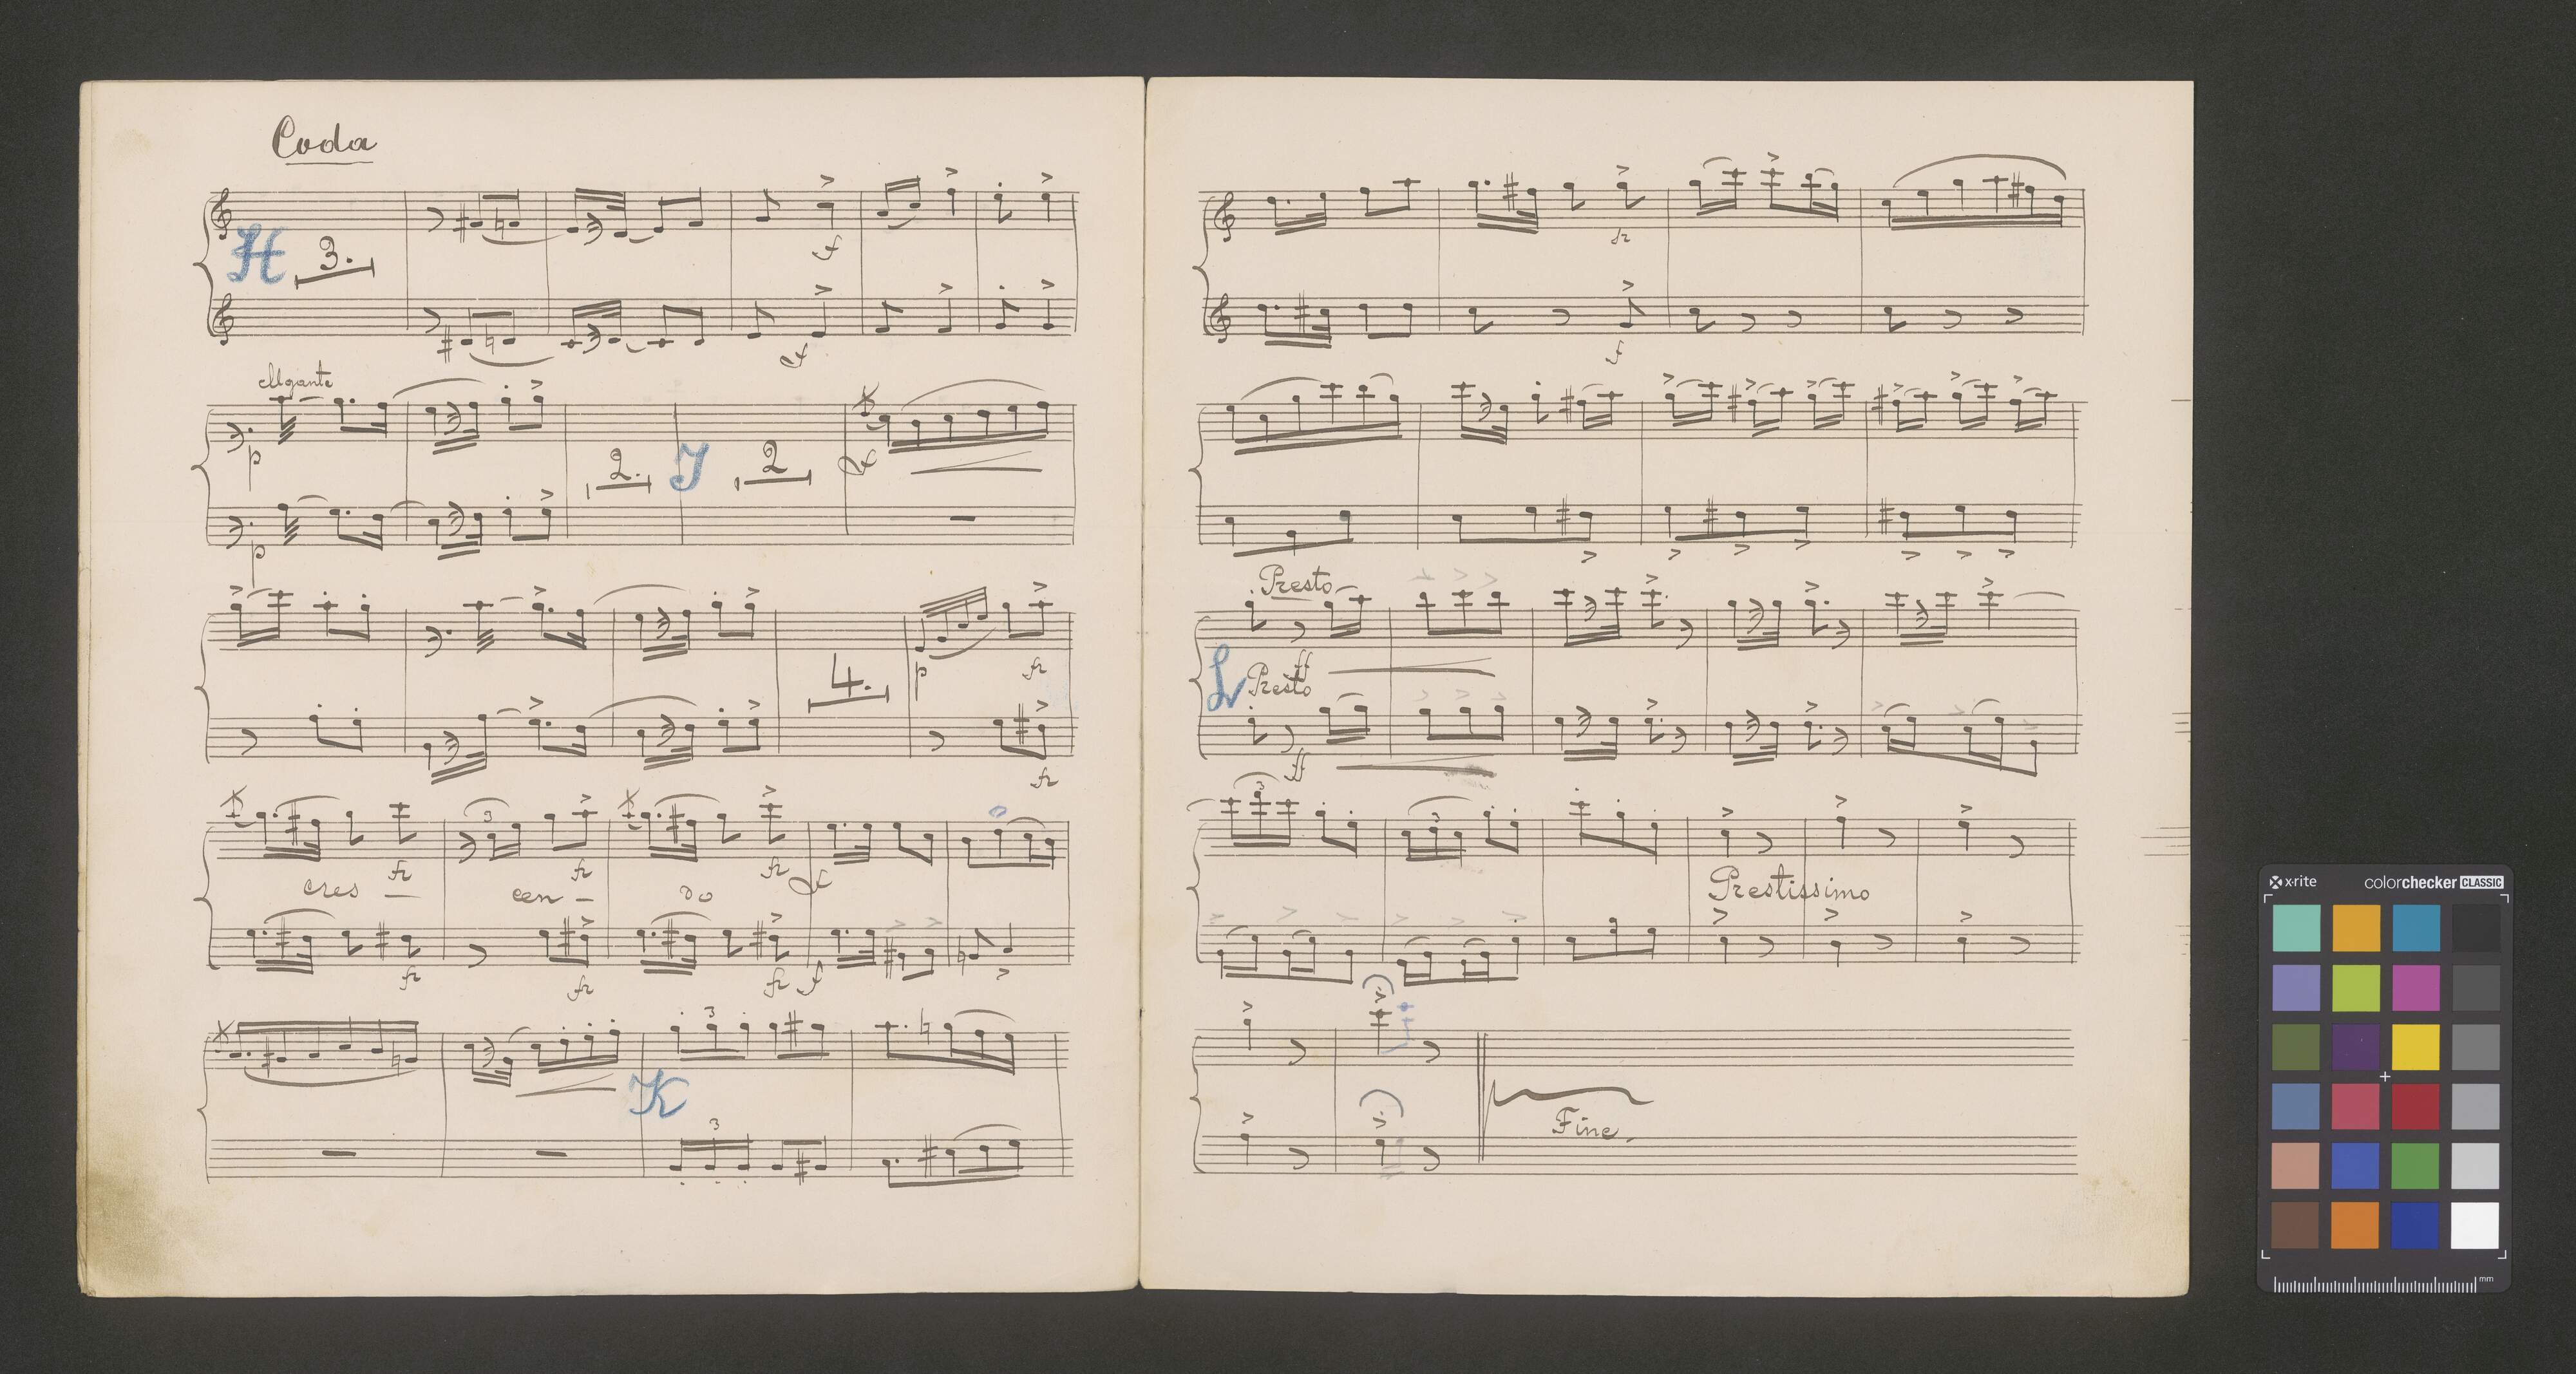 Coda
H 3.
f
f
elegante
p
2. J 2 f
p
4. p fz
fz
3
fz fz fz f
cres — cen — do
fz fz fz f
3
K
3
fz
f
Presto
ff
L Presto
ff
3 3
Prestissimo
Fine.
x-rite colorchecker CLASSIC
mm